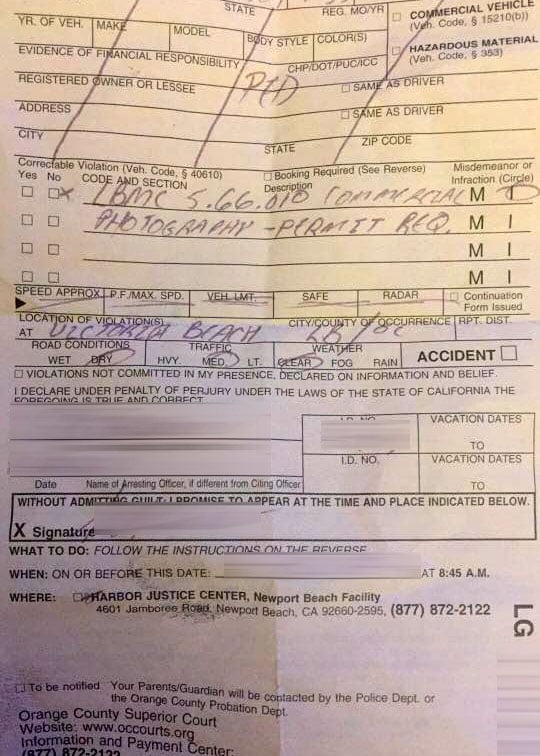 STATE
REG. MO/YR
☐ COMMERCIAL VEHICLE
(Veh. Code, § 15210(b))
YR. OF VEH. MAKE MODEL BODY STYLE COLOR(S)
☐ HAZARDOUS MATERIAL
(Veh. Code, § 353)
EVIDENCE OF FINANCIAL RESPONSIBILITY
CHP/DOT/PUC/ICC
REGISTERED OWNER OR LESSEE
☐ SAME AS DRIVER
ADDRESS
☐ SAME AS DRIVER
CITY STATE ZIP CODE
Correctable Violation (Veh. Code, § 40610) ☐ Booking Required (See Reverse) Misdemeanor or
Yes No CODE AND SECTION Description Infraction (Circle)
☐ ☐x LBMC 5.66.010 COMMERCIAL M I
☐ ☐ PHOTOGRAPHY - PERMIT REQ. M I
☐ ☐ M I
☐ ☐ M I
SPEED APPROX P.F./MAX. SPD. VEH. LMT. SAFE RADAR ☐ Continuation
Form Issued
LOCATION OF VIOLATION(S) CITY/COUNTY OF OCCURRENCE RPT. DIST.
AT VICTORIA BEACH LB/OC
ROAD CONDITIONS TRAFFIC WEATHER
WET DRY HVY. MED. LT. CLEAR FOG RAIN ACCIDENT ☐
☐ VIOLATIONS NOT COMMITTED IN MY PRESENCE, DECLARED ON INFORMATION AND BELIEF.
I DECLARE UNDER PENALTY OF PERJURY UNDER THE LAWS OF THE STATE OF CALIFORNIA THE
FOREGOING IS TRUE AND CORRECT
I.D. NO. VACATION DATES
TO
I.D. NO. VACATION DATES
TO
Date Name of Arresting Officer, if different from Citing Officer
WITHOUT ADMITTING GUILT, I PROMISE TO APPEAR AT THE TIME AND PLACE INDICATED BELOW.
X Signature
WHAT TO DO: FOLLOW THE INSTRUCTIONS ON THE REVERSE
WHEN: ON OR BEFORE THIS DATE: AT 8:45 A.M.
WHERE: ☐ HARBOR JUSTICE CENTER, Newport Beach Facility
4601 Jamboree Road, Newport Beach, CA 92660-2595, (877) 872-2122
LG
☐ To be notified Your Parents/Guardian will be contacted by the Police Dept. or
the Orange County Probation Dept.
Orange County Superior Court
Website: www.occourts.org
Information and Payment Center:
(877) 872-2122